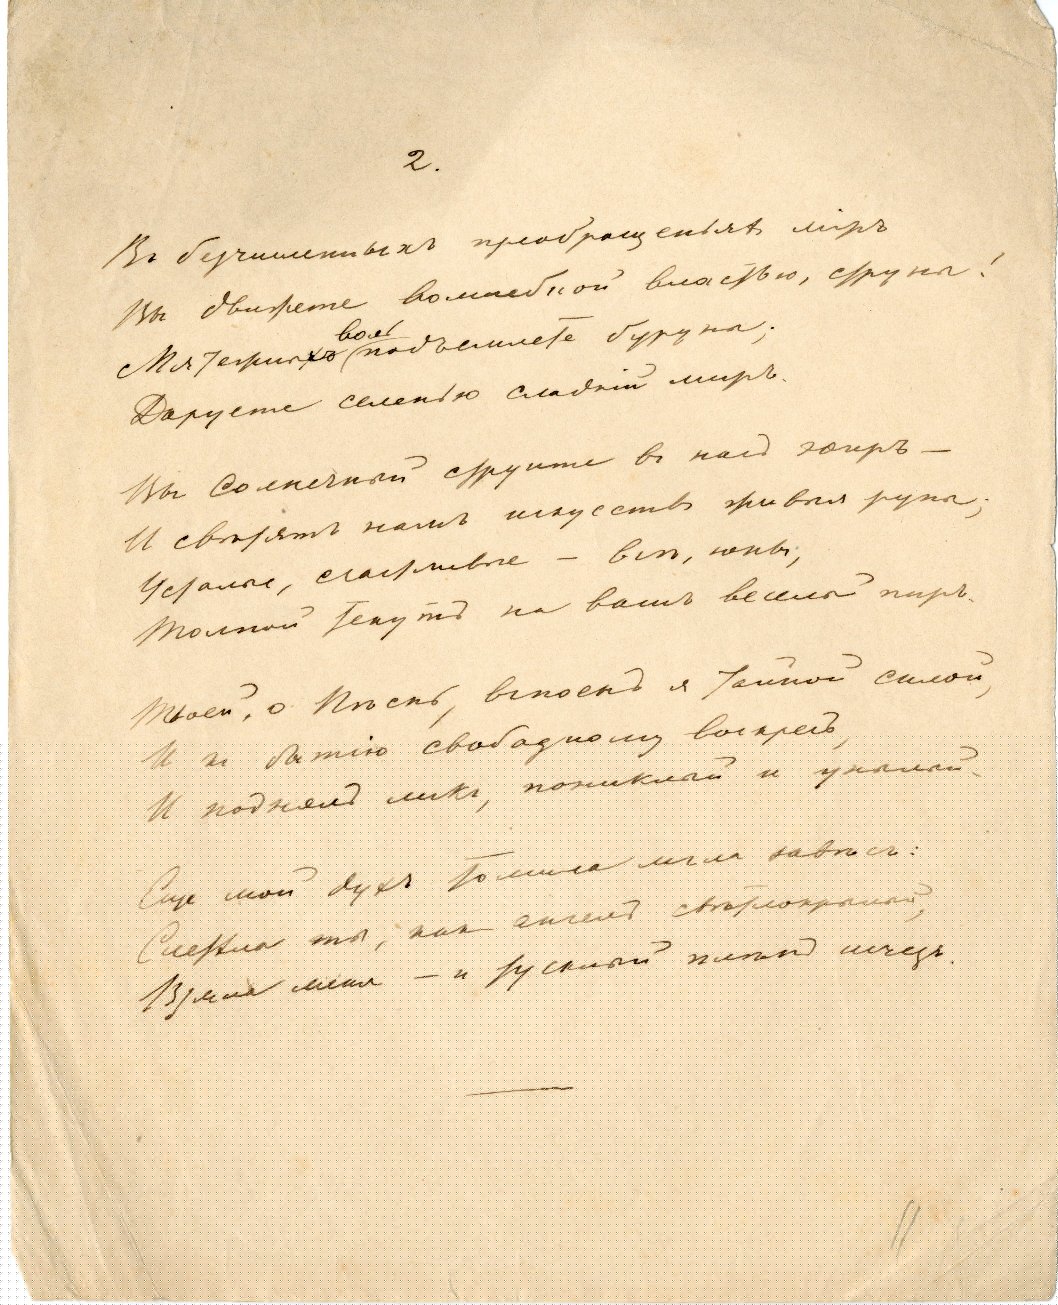 2.
Въ безчисленныхъ преобращеньяхъ міръ
Вы движете волшебной властью, струны!
Мятежныхъ волнъ подъемлете буруны;
Даруете селенью сладкій миръ.
Вы солнечный струите въ насъ эѳиръ —
И свѣтятъ намъ искусствъ живыя руны;
Усталые, счастливые — всѣ, юны,
Толпой текутъ на вашъ веселый пиръ.
Твоей, о Пѣснь, вспоенъ я тайной силой,
И къ бытію свободному воскресъ,
И поднялъ ликъ, пониклый и унылый.
Еще мой духъ томила мгла завѣсъ:
Слетѣла ты, какъ ангелъ свѣтлокрылый,
Взяла меня — и тусклый плѣнъ исчезъ.